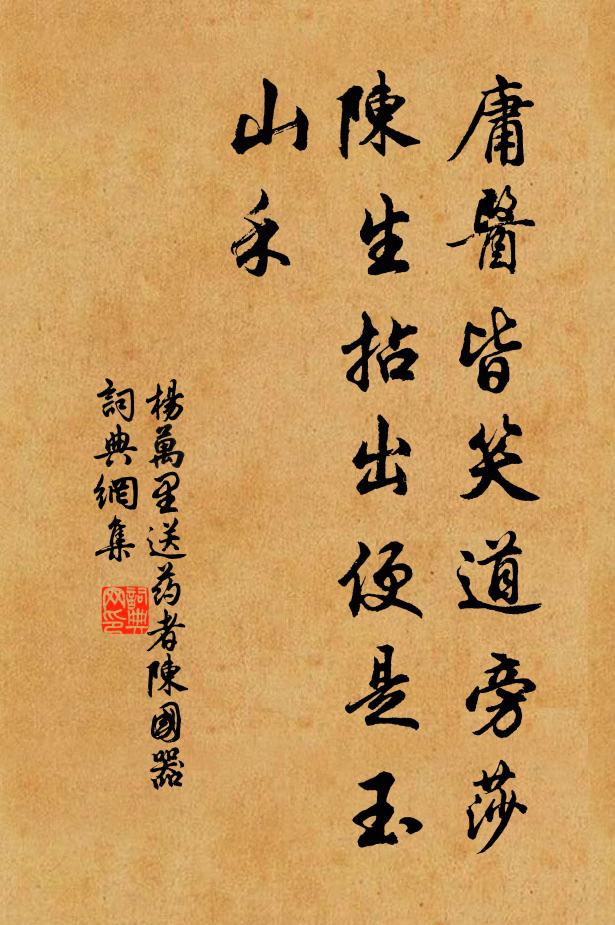 庸醫皆笑道旁莎
陳生拈出便是玉
山禾
楊萬里送药者陳國器
詞典網集
詞典
网印